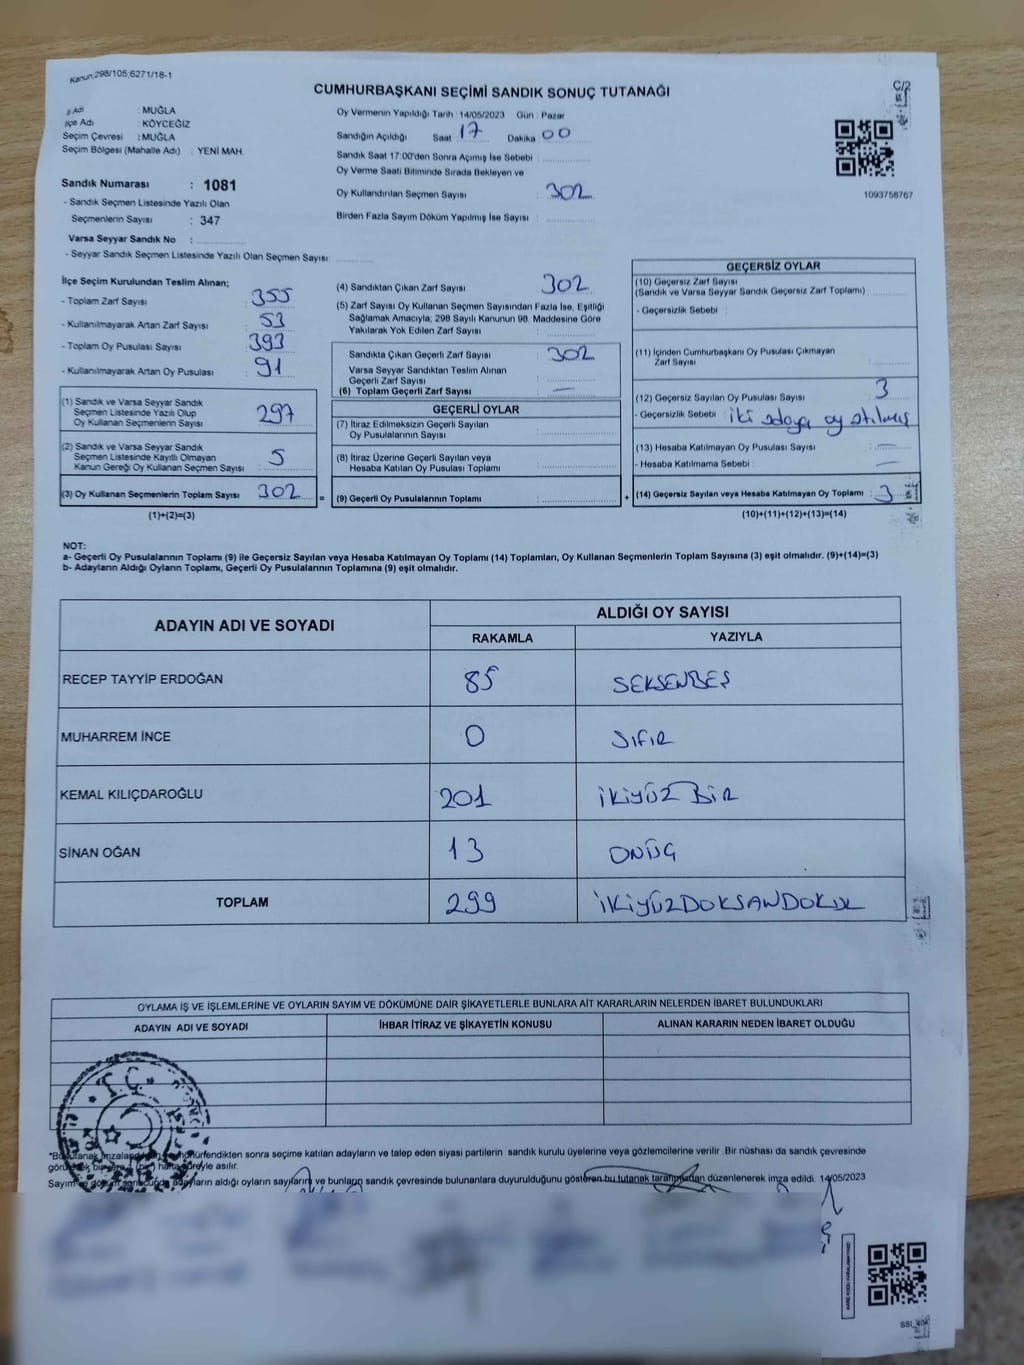 Kanun:298/105;6271/18-1
CUMHURBAŞKANI SEÇİMİ SANDIK SONUÇ TUTANAĞI
C/2
İl Adı : MUĞLA
İlçe Adı : KÖYCEĞİZ
Seçim Çevresi : MUĞLA
Seçim Bölgesi (Mahalle Adı) : YENİ MAH.
Sandık Numarası : 1081
- Sandık Seçmen Listesinde Yazılı Olan
Seçmenlerin Sayısı : 347
Varsa Seyyar Sandık No :
- Seyyar Sandık Seçmen Listesinde Yazılı Olan Seçmen Sayısı:
Oy Vermenin Yapıldığı Tarih :14/05/2023 Gün : Pazar
Sandığın Açıldığı Saat 17 Dakika 00
Sandık Saat 17:00'den Sonra Açımış İse Sebebi :
Oy Verme Saati Bitiminde Sırada Bekleyen ve
Oy Kullandırılan Seçmen Sayısı : 302
Birden Fazla Sayım Döküm Yapılmış İse Sayısı :
1093756767
İlçe Seçim Kurulundan Teslim Alınan;
- Toplam Zarf Sayısı : 355
- Kullanılmayarak Artan Zarf Sayısı : 53
- Toplam Oy Pusulası Sayısı : 393
- Kullanılmayarak Artan Oy Pusulası : 91
(1) Sandık ve Varsa Seyyar Sandık
Seçmen Listesinde Yazılı Olup
Oy Kullanan Seçmenlerin Sayısı : 297
(2) Sandık ve Varsa Seyyar Sandık
Seçmen Listesinde Kayıtlı Olmayan
Kanun Gereği Oy Kullanan Seçmen Sayısı : 5
(3) Oy Kullanan Seçmenlerin Toplam Sayısı : 302
(1)+(2)=(3)
=
(4) Sandıktan Çıkan Zarf Sayısı : 302
(5) Zarf Sayısı Oy Kullanan Seçmen Sayısından Fazla İse, Eşitliği
Sağlamak Amacıyla; 298 Sayılı Kanunun 98. Maddesine Göre
Yakılarak Yok Edilen Zarf Sayısı :
Sandıkta Çıkan Geçerli Zarf Sayısı : 302
Varsa Seyyar Sandıktan Teslim Alınan
Geçerli Zarf Sayısı :
(6) Toplam Geçerli Zarf Sayısı : —
GEÇERLİ OYLAR
(7) İtiraz Edilmeksizin Geçerli Sayılan
Oy Pusulalarının Sayısı :
(8) İtiraz Üzerine Geçerli Sayılan veya
Hesaba Katılan Oy Pusulası Toplamı :
(9) Geçerli Oy Pusulalarının Toplamı :
+
GEÇERSİZ OYLAR
(10) Geçersiz Zarf Sayısı
(Sandık ve Varsa Seyyar Sandık Geçersiz Zarf Toplamı) :
- Geçersizlik Sebebi :
(11) İçinden Cumhurbaşkanı Oy Pusulası Çıkmayan
Zarf Sayısı :
(12) Geçersiz Sayılan Oy Pusulası Sayısı : 3
- Geçersizlik Sebebi : iki adaya oy atılmış
(13) Hesaba Katılmayan Oy Pusulası Sayısı : —
- Hesaba Katılmama Sebebi : —
(14) Geçersiz Sayılan veya Hesaba Katılmayan Oy Toplamı : 3
(10)+(11)+(12)+(13)=(14)
NOT:
a- Geçerli Oy Pusulalarının Toplamı (9) ile Geçersiz Sayılan veya Hesaba Katılmayan Oy Toplamı (14) Toplamları, Oy Kullanan Seçmenlerin Toplam Sayısına (3) eşit olmalıdır. (9)+(14)=(3)
b- Adayların Aldığı Oyların Toplamı, Geçerli Oy Pusulalarının Toplamına (9) eşit olmalıdır.
ADAYIN ADI VE SOYADI ALDIĞI OY SAYISI
RAKAMLA YAZIYLA
RECEP TAYYİP ERDOĞAN 85 SEKSENBEŞ
MUHARREM İNCE 0 SIFIR
KEMAL KILIÇDAROĞLU 201 İKİYÜZ BİR
SİNAN OĞAN 13 ONÜÇ
TOPLAM 299 İKİYÜZDOKSANDOKUZ
OYLAMA İŞ VE İŞLEMLERİNE VE OYLARIN SAYIM VE DÖKÜMÜNE DAİR ŞİKAYETLERLE BUNLARA AİT KARARLARIN NELERDEN İBARET BULUNDUKLARI
ADAYIN ADI VE SOYADI İHBAR İTİRAZ VE ŞİKAYETİN KONUSU ALINAN KARARIN NEDEN İBARET OLDUĞU
T.C.
sonra seçime katılan adayların ve talep eden siyasi partilerin sandık kurulu üyelerine veya gözlemcilerine verilir .Bir nüshası da sandık çevresinde
asılır.
adayların aldığı oyların sayıların ve bunların sandık çevresinde bulunanlara duyurulduğunu gösteren bu tutanak tarafımızdan düzenlenerek imza edildi. 14/05/2023